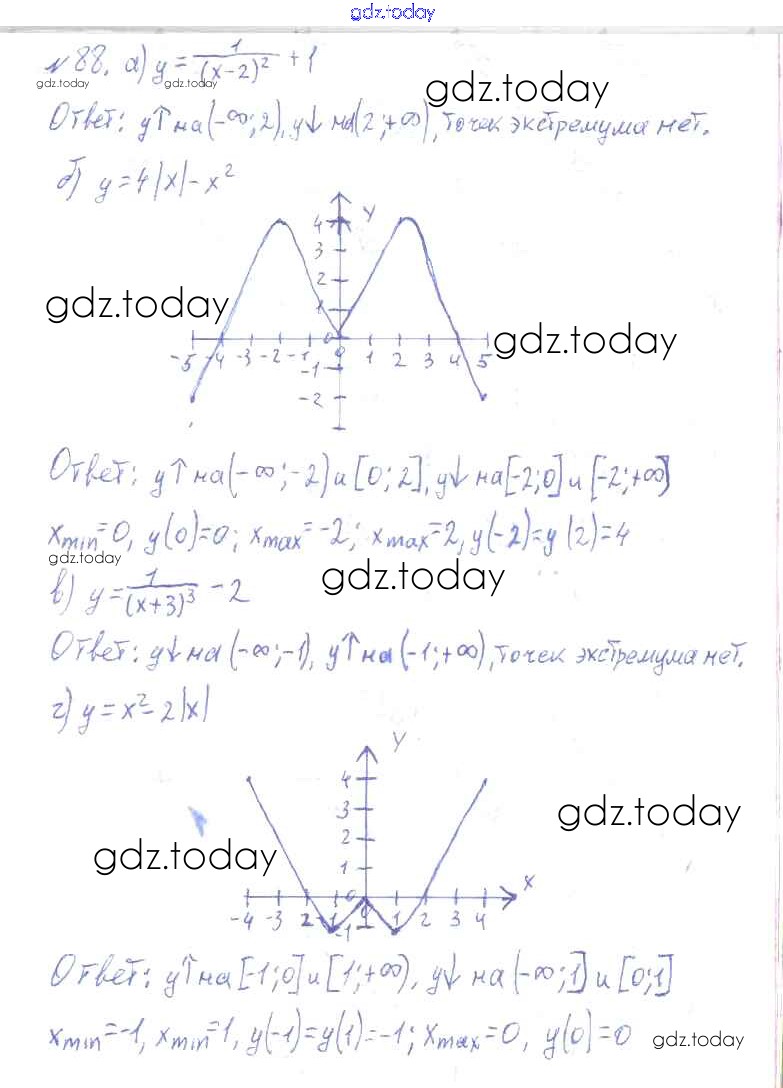 gdz.today
№88. а) y = 1/(x-2)² + 1
gdz.today gdz.today gdz.today
Ответ: y↑ на (-∞; 2), y↓ на (2; +∞), точек экстремума нет.
б) y = 4|x| - x²
y
4
3
2
1
gdz.today
gdz.today
0
-5 -4 -3 -2 -1 0 1 2 3 4 5
-1
-2
Ответ: y↑ на (-∞; -2) и [0; 2], y↓ на [-2; 0] и [-2; +∞)
xmin = 0, y(0) = 0; xmax = -2; xmax = 2, y(-2) = y(2) = 4
gdz.today
gdz.today
в) y = 1/(x+3)³ - 2
Ответ: y↓ на (-∞; -1), y↑ на (-1; +∞), точек экстремума нет.
г) y = x² - 2|x|
y
4
3
2
1
gdz.today
gdz.today
0
x
-4 -3 2 -1 0 1 2 3 4
-1
Ответ: y↑ на [-1; 0] и [1; +∞), y↓ на (-∞; 1] и [0; 1]
xmin = -1, xmin = 1, y(-1) = y(1) = -1; xmax = 0, y(0) = 0
gdz.today